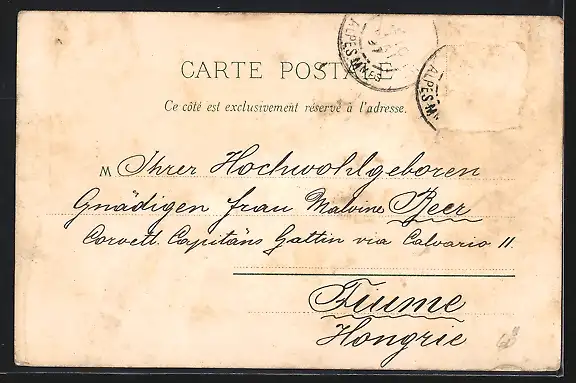 CARTE POSTALE
Ce côté est exclusivement réservé à l'adresse.
M Ihrer Hochwohlgeboren
Gnädigen Frau Malvine Beer
Corvett. Capitäns Gattin via Calvario 11
Fiume
Hongrie
ALPES-MMES
ALPES-M